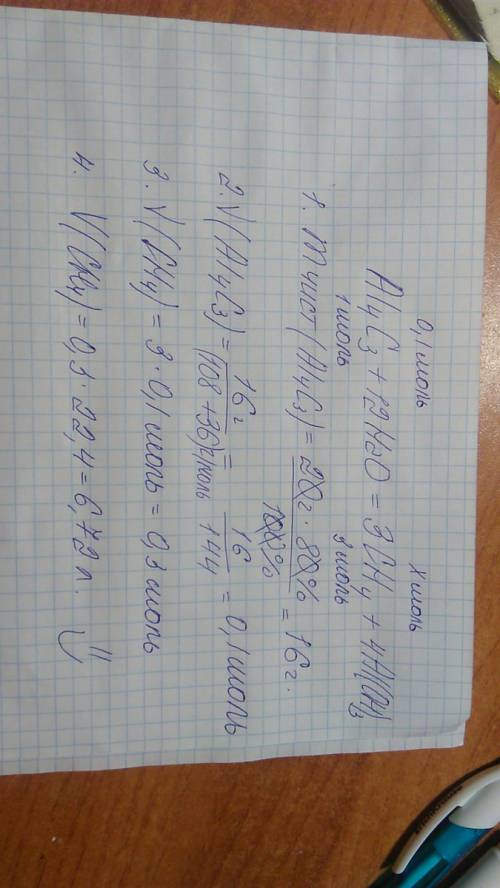 0,1 моль х моль
Al4C3 + 12H2O = 3CH4 + 4Al(OH)3
1 моль 3 моль
1. m чист (Al4C3) = 20г · 80% / 100% = 16г.
2. V(Al4C3) = 16г / (108+36)г/моль = 16 / 144 = 0,1 моль
3. V(CH4) = 3 · 0,1 моль = 0,3 моль
4. V(CH4) = 0,3 · 22,4 = 6,72 л.